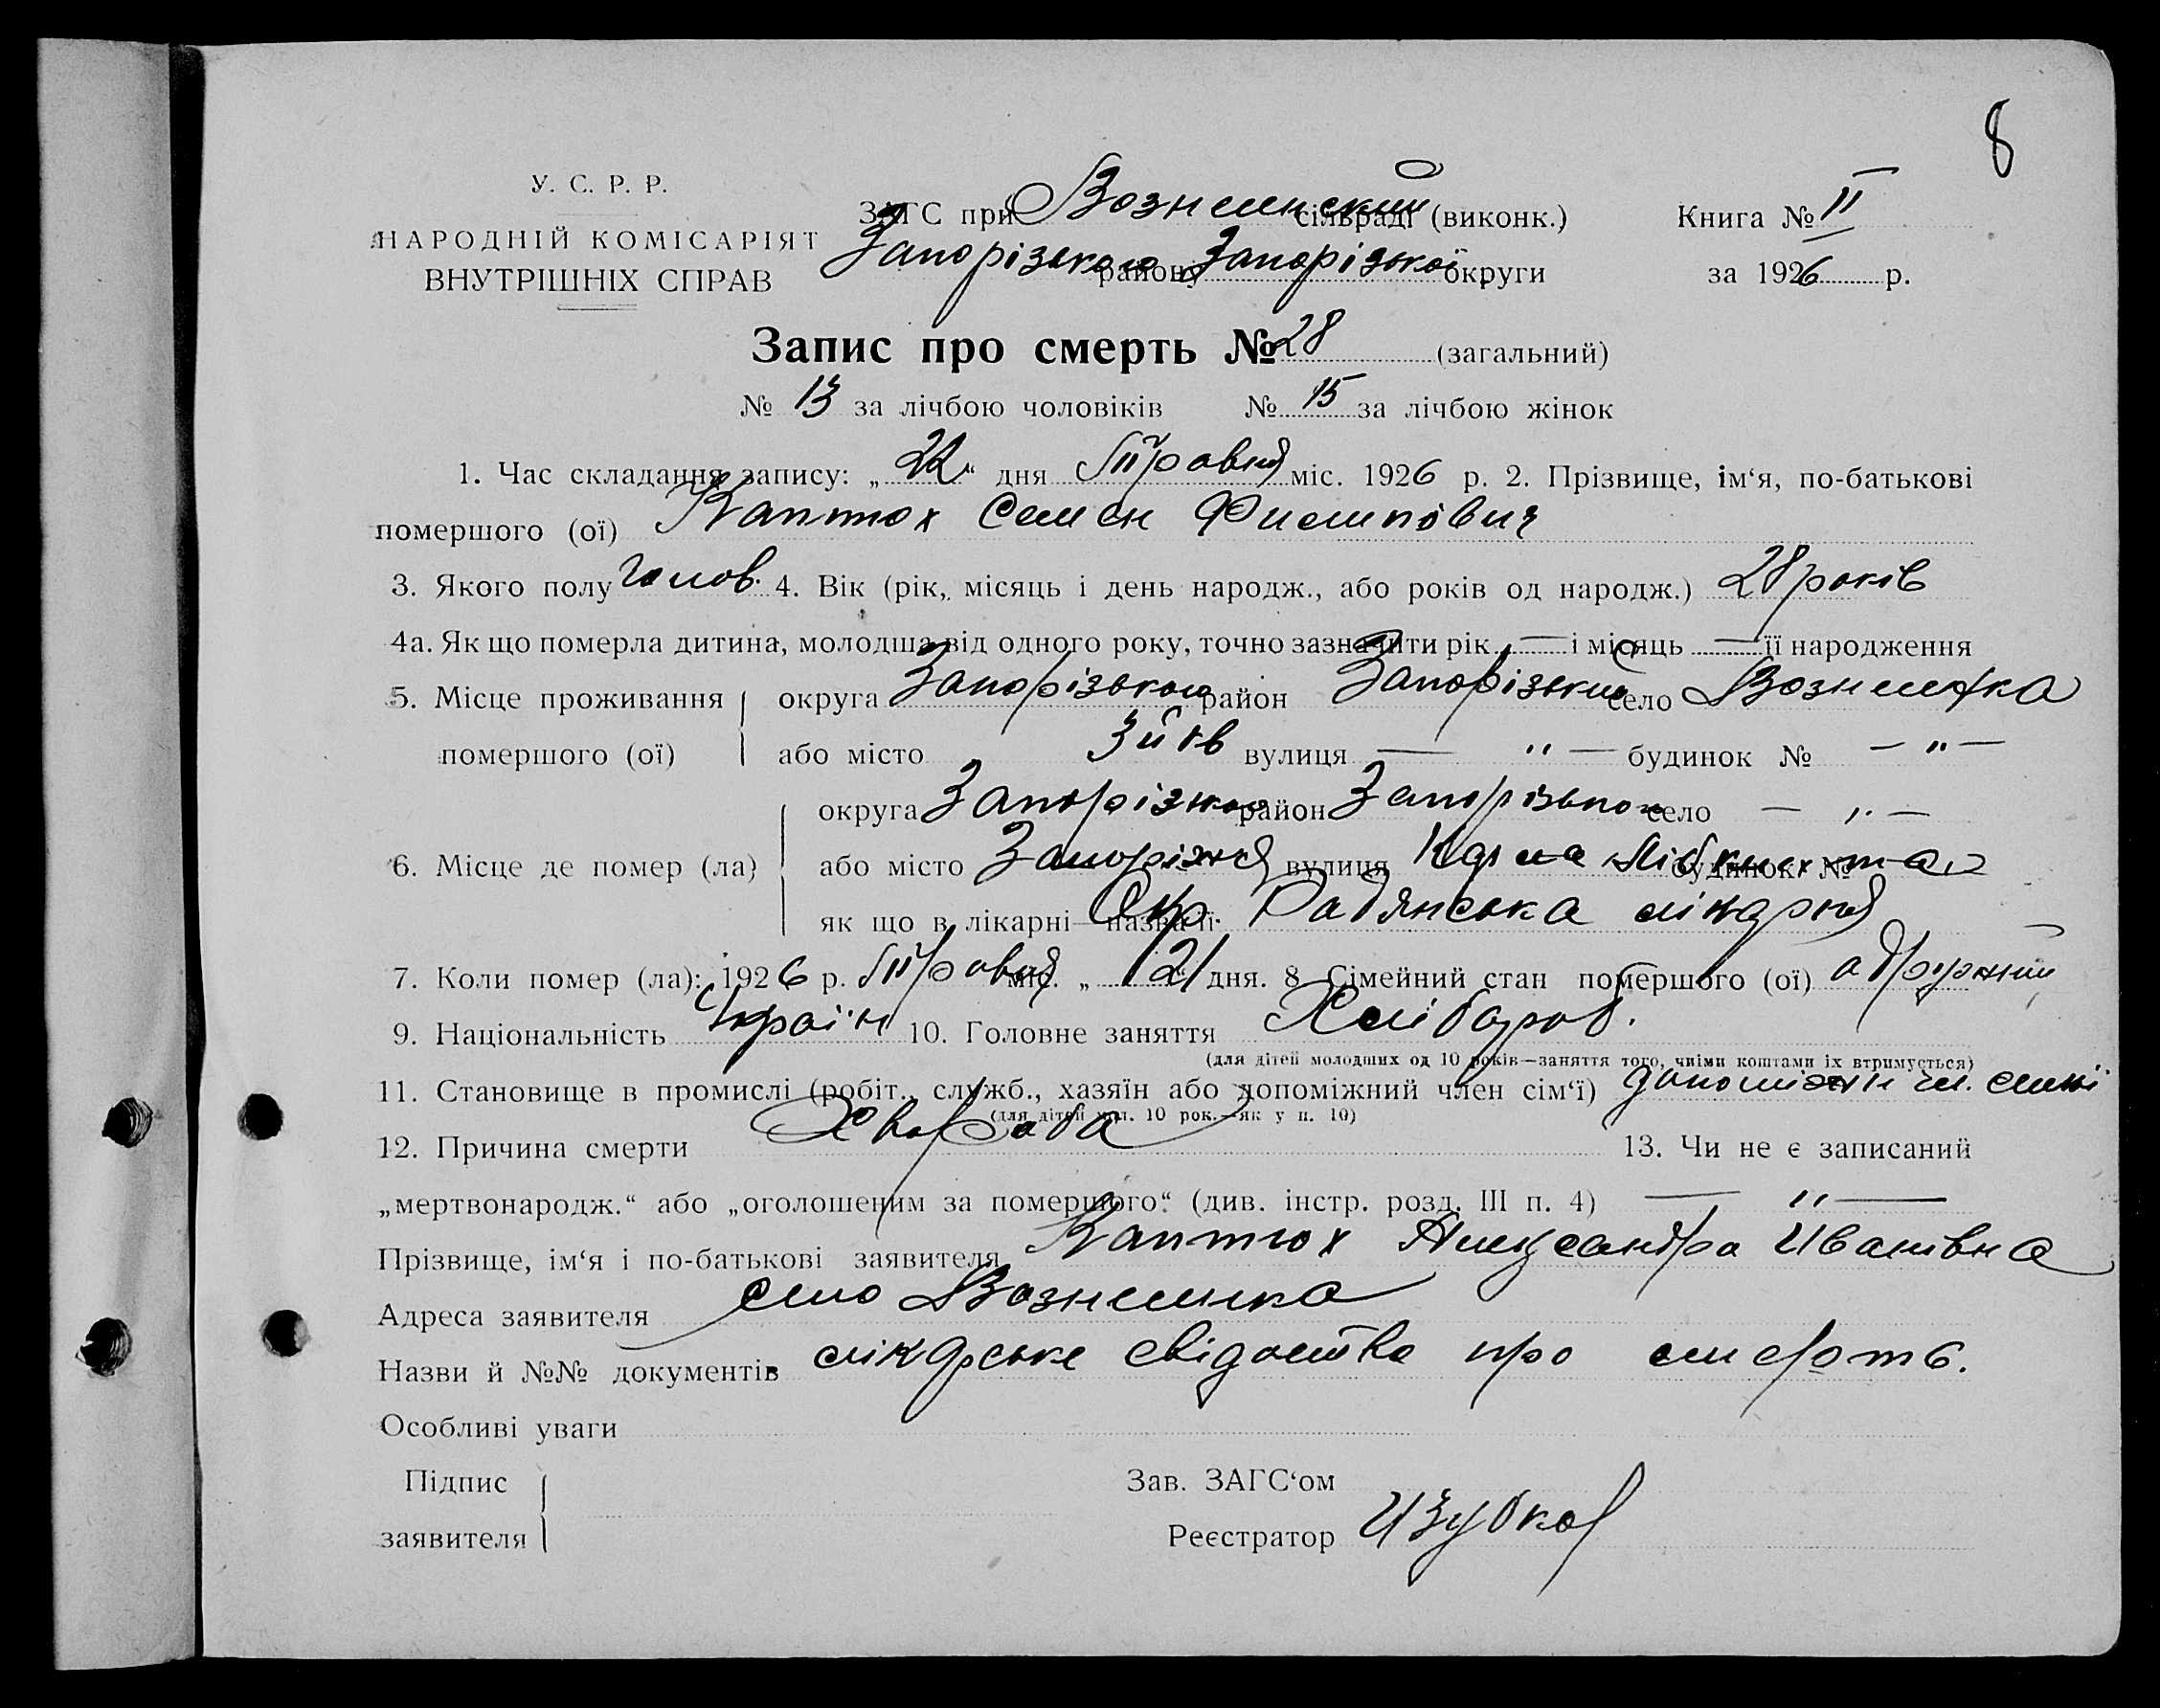 8
У. С. Р. Р.
НАРОДНІЙ КОМІСАРІЯТ
ВНУТРІШНІХ СПРАВ
ЗАГС при Вознесенский сільраді (виконк.)
Запорізького району Запорізької округи
Книга № II
за 1926 р.
Запис про смерть № 28 (загальний)
№ 13 за лічбою чоловіків № 15 за лічбою жінок
1. Час складання запису: „22“ дня Травня міс. 1926 р. 2. Прізвище, ім‘я, по-батькові
помершого (ої) Каптюх Семен Филипович
3. Якого полу чолов. 4. Вік (рік, місяць і день народж., або років од народж.) 28 років
4а. Як що померла дитина, молодша від одного року, точно зазначити рік — і місяць — її народження
5. Місце проживання округа Запорізького район Запорізький село Вознесенка
помершого (ої) або місто вулиця — " — будинок № — " —
округа Запорізького район Запорізького село — " —
6. Місце де помер (ла) або місто Запоріжжя вулиця Карла Лібкнехта будинок №
як що в лікарні—назва її Окр. Радянська лікарня
7. Коли помер (ла): 1926 р. Травня міс. „21“ дня. 8. Сімейний стан помершого (ої) одружний
9. Національність Україн 10. Головне заняття Хлібороб.
(для дітей молодших од 10 років—заняття того, чиїми коштами їх втримується)
11. Становище в промислі (робіт., служб., хазяїн або допоміжний член сім‘ї) допоміжн чл. семї
(для дітей мол. 10 рок.—як у п. 10)
12. Причина смерти Хвороба 13. Чи не є записаний
„мертвонародж.“ або „оголошеним за помершого“ (див. інстр. розд. III п. 4) — " —
Прізвище, ім‘я і по-батькові заявителя Каптюх Александра Иванівна
Адреса заявителя село Вознесенка
Назви й №№ документів лікарське свідоцтво про смерть.
Особливі уваги
Підпис
заявителя
Зав. ЗАГС‘ом
Реєстратор И Зубков